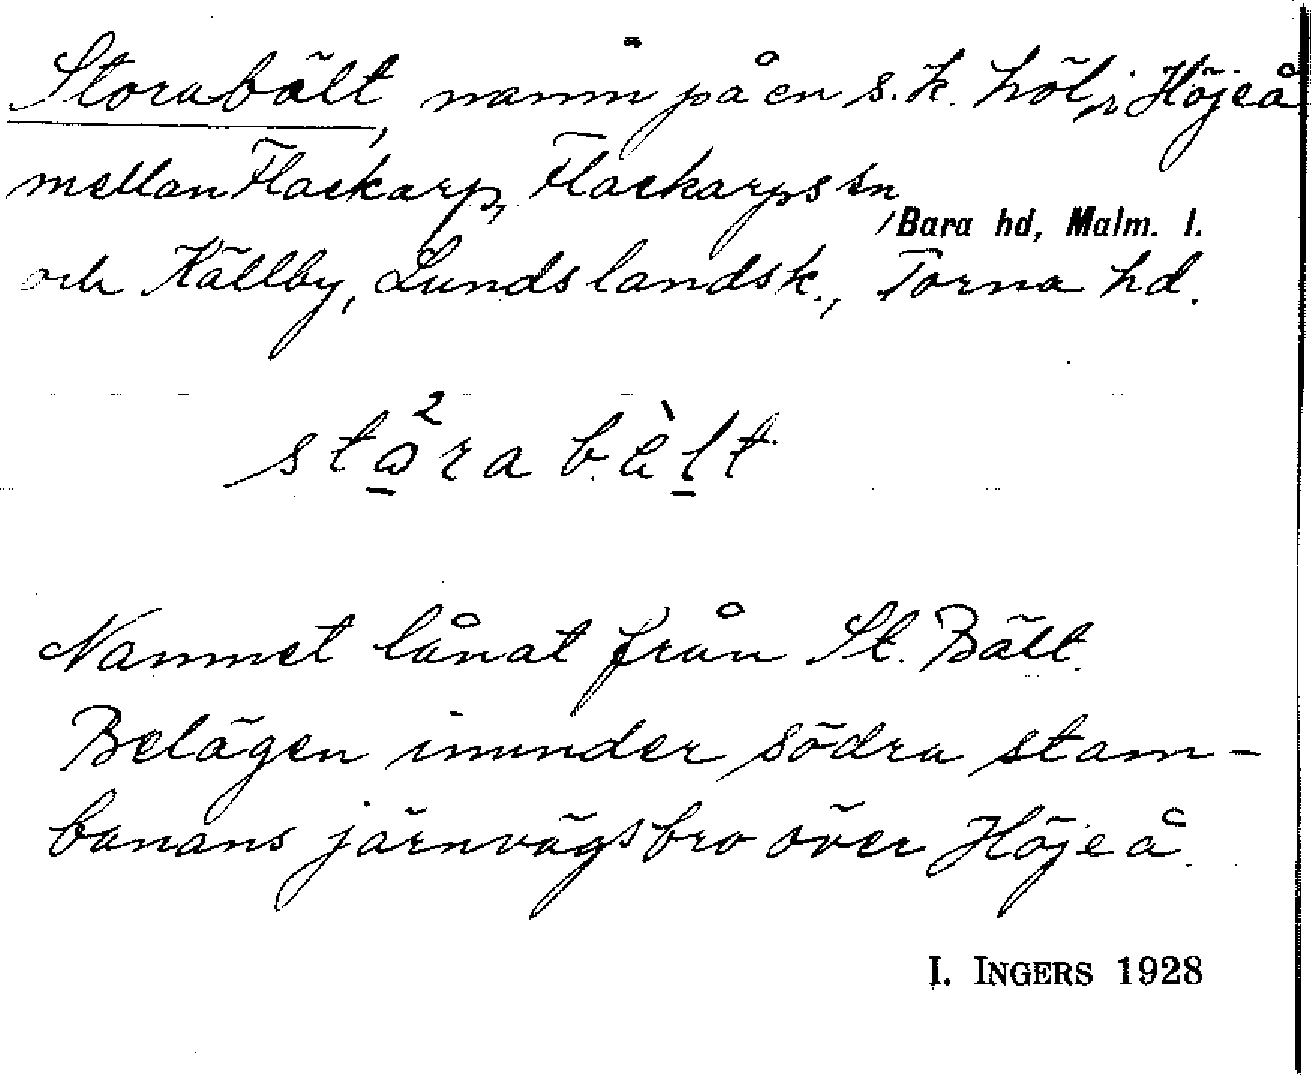 Storabält, namn på en s.k. höl, i Höjeå
mellan Flackarp, Flackarps sn
/Bara hd, Malm. l.
och Källby, Lunds landsk., Torna hd.
Namnet lånat från St. Bält.
Belägen inunder södra stam-
banans järnvägsbro över Höjeå.
I. INGERS 1928